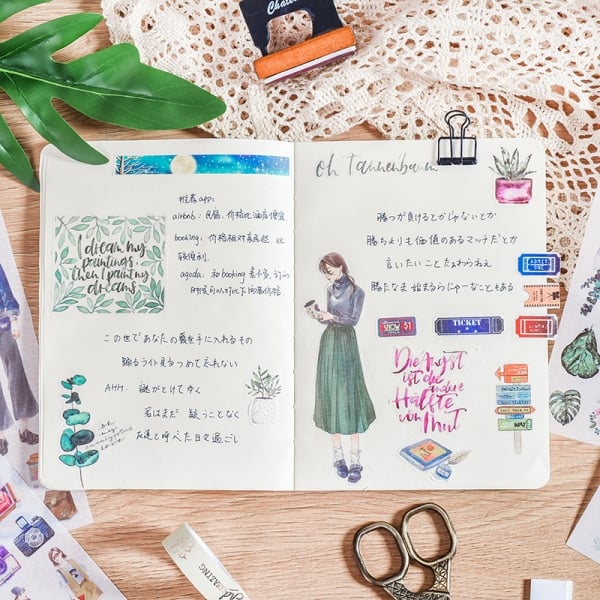 Chalet
推荐app:
airbnb: 民宿, 价格比酒店便宜
booking: 价格相对来说
较便利.
agoda: 和booking差不多,
I dream my
paintings,
then I paint my
dreams
この世であなたの愛を手に入れるもの
踊るライト見つめて忘れない
AHH. 謎がとけてゆく
君はまだ 疑うことなく
友達と呼べた日々過ごし
oh Tannenbaum
勝つか負けるとかじゃないとか
勝ちよりも価値のあるマッチだとか
言いたいことたぁわらねえ
勝たなま始まらにゃーなこともある
ADMIT
ONE
SHOW
$1
TICKET
Die Angst
ist die
andere
Hälfte
von Mut
WAY
AMAZING